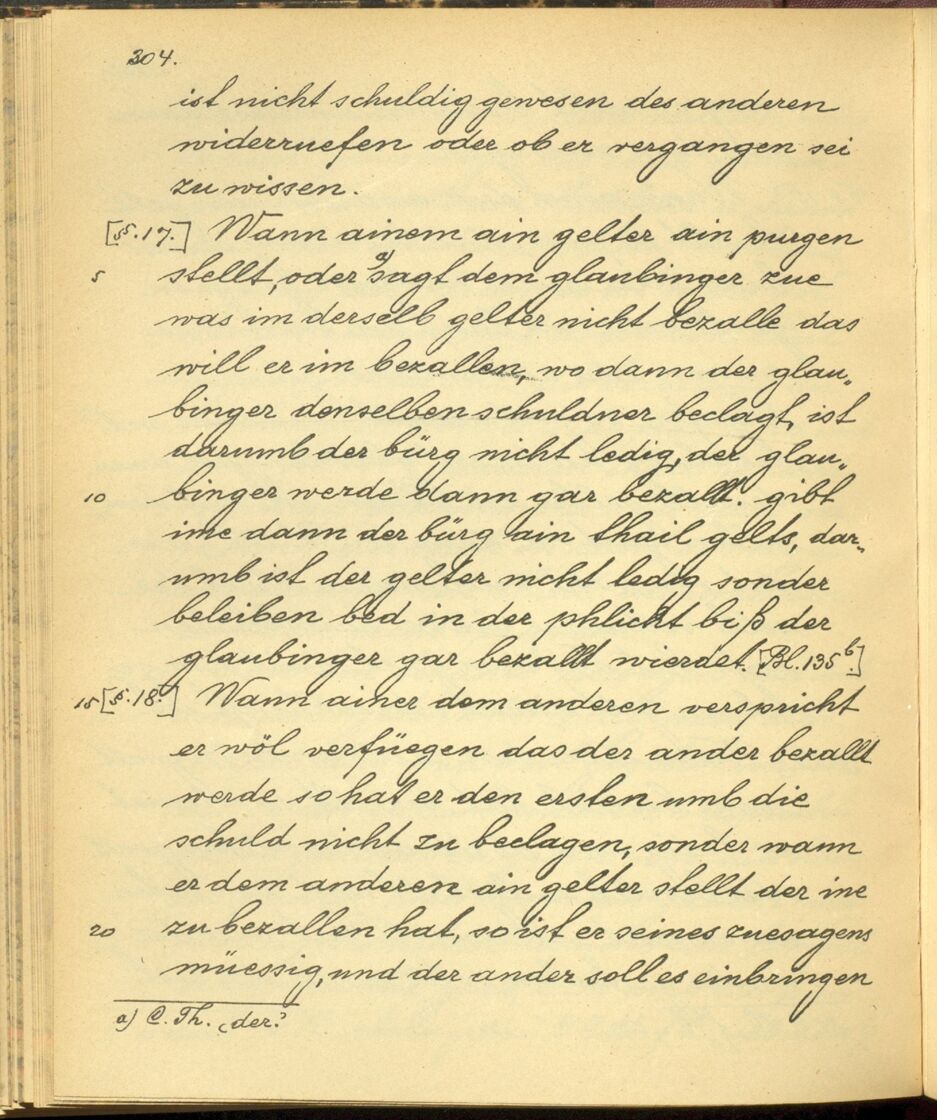 304.
ist nicht schuldig gewesen des anderen
widerruefen oder ob er vergangen sei
zu wissen.
[§. 17.] Wann ainem ain gelter ain purgen
5 stellt, oder a) sagt dem glaubinger zue
was im derselb gelter nicht bezalle das
will er im bezallen, wo dann der glau„
binger denselben schuldner beclagt, ist
darumb der bürg nicht ledig, der glau„
10 binger werde dann gar bezallt. gibt
ime dann der bürg ain thail gelts, dar„
umb ist der gelter nicht ledig sonder
beleiben bed in der phlicht biß der
glaubinger gar bezallt wierdet. [Bl. 135b.]
15 [§. 18.] Wann ainer dem anderen verspricht
er wöl verfüegen das der ander bezallt
werde so hat er den ersten umb die
schuld nicht zu beclagen, sonder wann
er dem anderen ain gelter stellt der ine
20 zu bezallen hat, so ist er seines zuesagens
müessig, und der ander soll es einbringen
a) C. Th. „der“